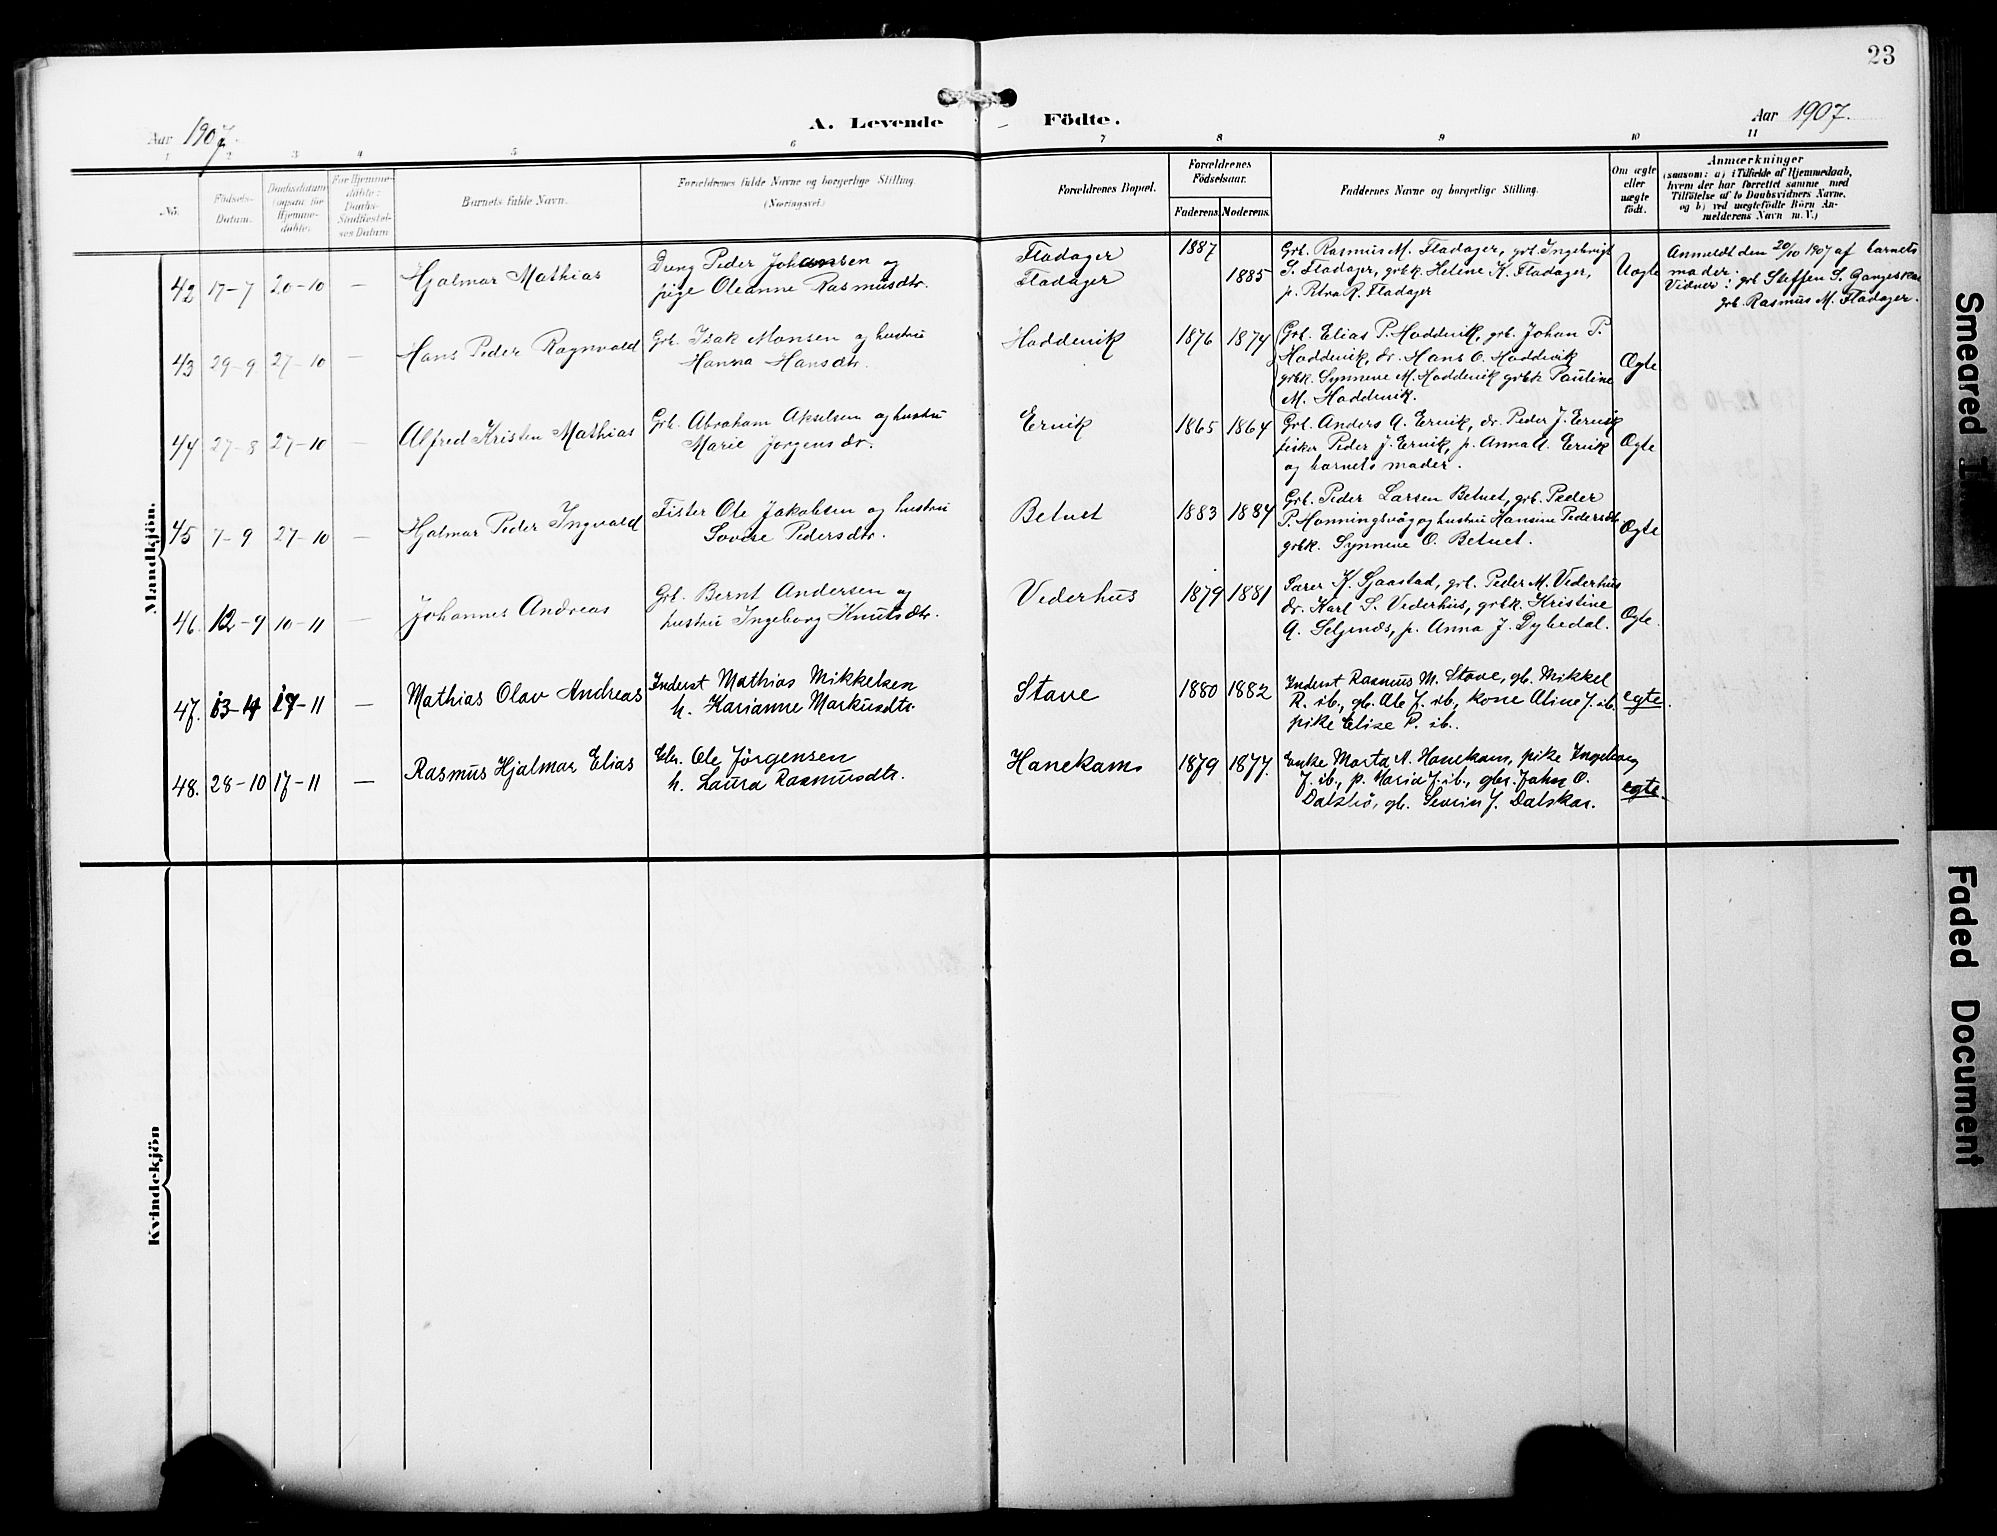 23
Aar 1907.
A. Levende Födte.
Aar 1907.
1 2 3 4 5 6 7 8 9 10 11
No. Födsels-Datum. Daabsdatum (ogsaa for Hjemme-døbte). For Hjemme-døbte: Daabs-Stadfæstel-ses Datum Barnets fulde Navn. Forældrenes fulde Navne og borgerlige Stilling. (Næringsvei.) Forældrenes Bopæl. Forældrenes Födselsaar. Faderens. Moderens. Faddernes Navne og borgerlige Stilling. Om ægte eller uægte født.
Anmærkninger
(saasom: a) i Tilfælde af Hjemmedaab,
hvem der har forrettet samme med
Tilföielse af to Daabsvidners Navne.
og b) ved uægtefödte Börn An-
melderens Navn m. V.)
Mandkjön.
42 17-7 20-10 — Hjalmar Mathias
Dreng Peder Johansen og
pige Oleanne Rasmusdtr.
Fladager
Fladager
1887
1885
Grb. Rasmus M. Fladager, grb. Ingebrigt
S. Fladager, grbk. Heline K. Fladager,
p. Petra R. Fladager
Uægte
Anmeldt den 20/10 1907 af barnets
moder.
Vidner: grb Steffen S.
grb. Rasmus M. Fladager.
43 29-9 27-10 — Hans Peder Ragnvald
Grb. Isak Monsen og hustru
Hanna Hansdtr.
Hoddevik 1876 1874
Grb. Elias P. Hoddevik, grb. Johan P.
Hoddevik, dr. Hans O. Hoddevik
grbk. Synneve M. Hoddevik grbk Pauline
M. Hoddevik.
Ægte
44 27-8 27-10 — Alfred Kristen Mathias
Grb. Abraham Akselsen og hustru
Marie Jørgensdr.
Ervik 1865 1864
Grb. Anders A. Ervik, dr. Peder J. Ervik
fisker Peder J. Ervik, p. Anna A. Ervik
og barnets moder.
Ægte
45 7-9 27-10 — Hjalmar Peder Ingvald
Fisker Ole Jakobsen og hustru
Lovise Pedersdtr.
Betuet 1883 1884
Grb. Peder Larsen Betuet, grb. Peder
P. Honningsvåg og hustru Hansine Pedersdtr
grbk. Synneve O. Betuet.
Ægte
46. 12-9 10-11 — Johannes Andreas
Grb. Bernt Andersen og
hustru Ingeborg Knutsdtr.
Vederhus 1879 1881
K. Sjaastad, grb. Peder M. Vederhus
dr. Karl S. Vederhus, grbk. Kristine
A. p. Anna J. Dybedal.
Ægte.
47. 17-11 — Mathias Olav Andreas
Inderst Mathias Mikkelsen
h. Karianne Markusdtr.
Stave 1880 1882
Inderst Rasmus M. Stave, gb. Mikkel
R. ib., gb. Ole J. ib., kone Aline J. ib.
pike Elise P. ib.
egte.
48. 28-10 17-11 — Rasmus Hjalmar Elias
Gbr. Ole Jørgensen
h. Laura Rasmusdtr.
Hanekam 1879 1877.
Enke Marta N. Hanekam, pike Ingeborg
J. ib., p. Maria J. ib., gbr. Johan O.
gb. Severin J. Dalskar.
egte.
Kvindekjön
Smeared
Faded Document